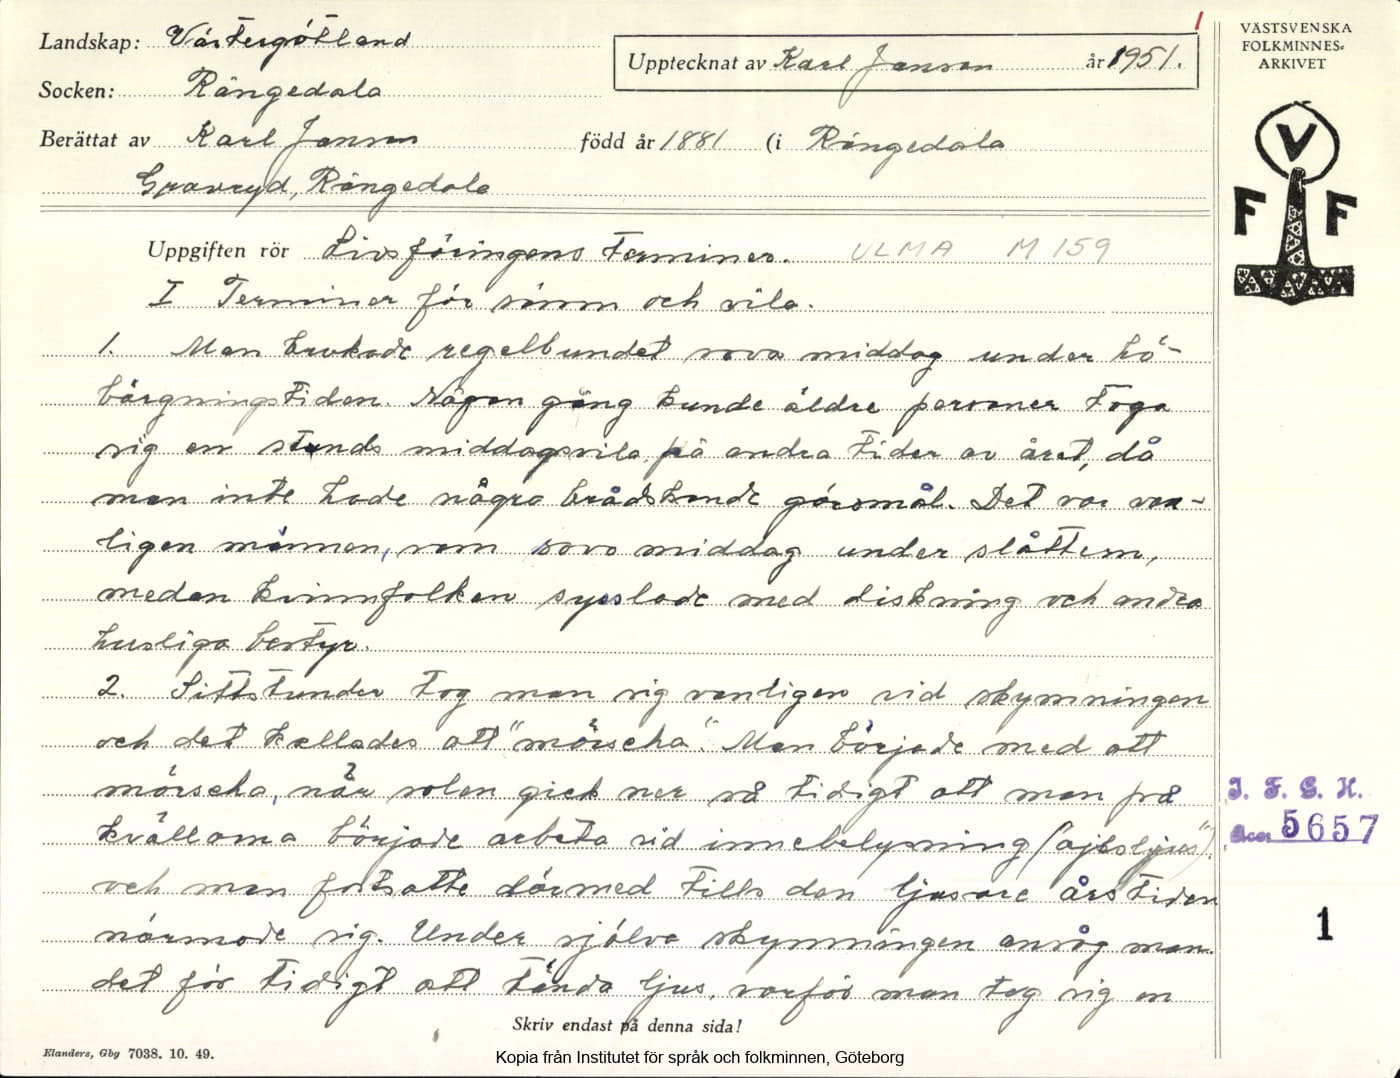 1
VÄSTSVENSKA
FOLKMINNES-
ARKIVET
V
F F
Landskap: Västergötland
Upptecknat av Karl Janson år 1951.
Socken: Rångedala
Berättat av Karl Janson född år 1881 (i Rångedala
Gravryd, Rångedala
Uppgiften rör Livsföringens Terminer. ULMA M 159
I Terminer för sömn och vila.
1. Man brukade regelbundet sova middag under hö-
bärgningstiden. Någon gång kunde äldre personer taga
sig en stunds middagsvila på andra tider av året, då
man inte hade några brådskande göromål. Det var van-
ligen männen, som sovo middag under slåttern,
medan kvinnfolken sysslade med diskning och andra
husliga bestyr.
2. Sittstunder tog man sig vanligen vid skymningen
och det kallades att "mörscha". Man började med att
mörscha, när solen gick ner så tidigt att man på
kvällarna började arbeta vid innebelysning ("ajlsljus").
och man fortsatte därmed tills den ljusare årstiden
närmade sig. Under själva skymningen ansåg man
det för tidigt att tända ljus, varför man tog sig en
I. F. G. H.
Acc. 5657
1
Skriv endast på denna sida!
Elanders, Gbg 7038. 10. 49.
Kopia från Institutet för språk och folkminnen, Göteborg